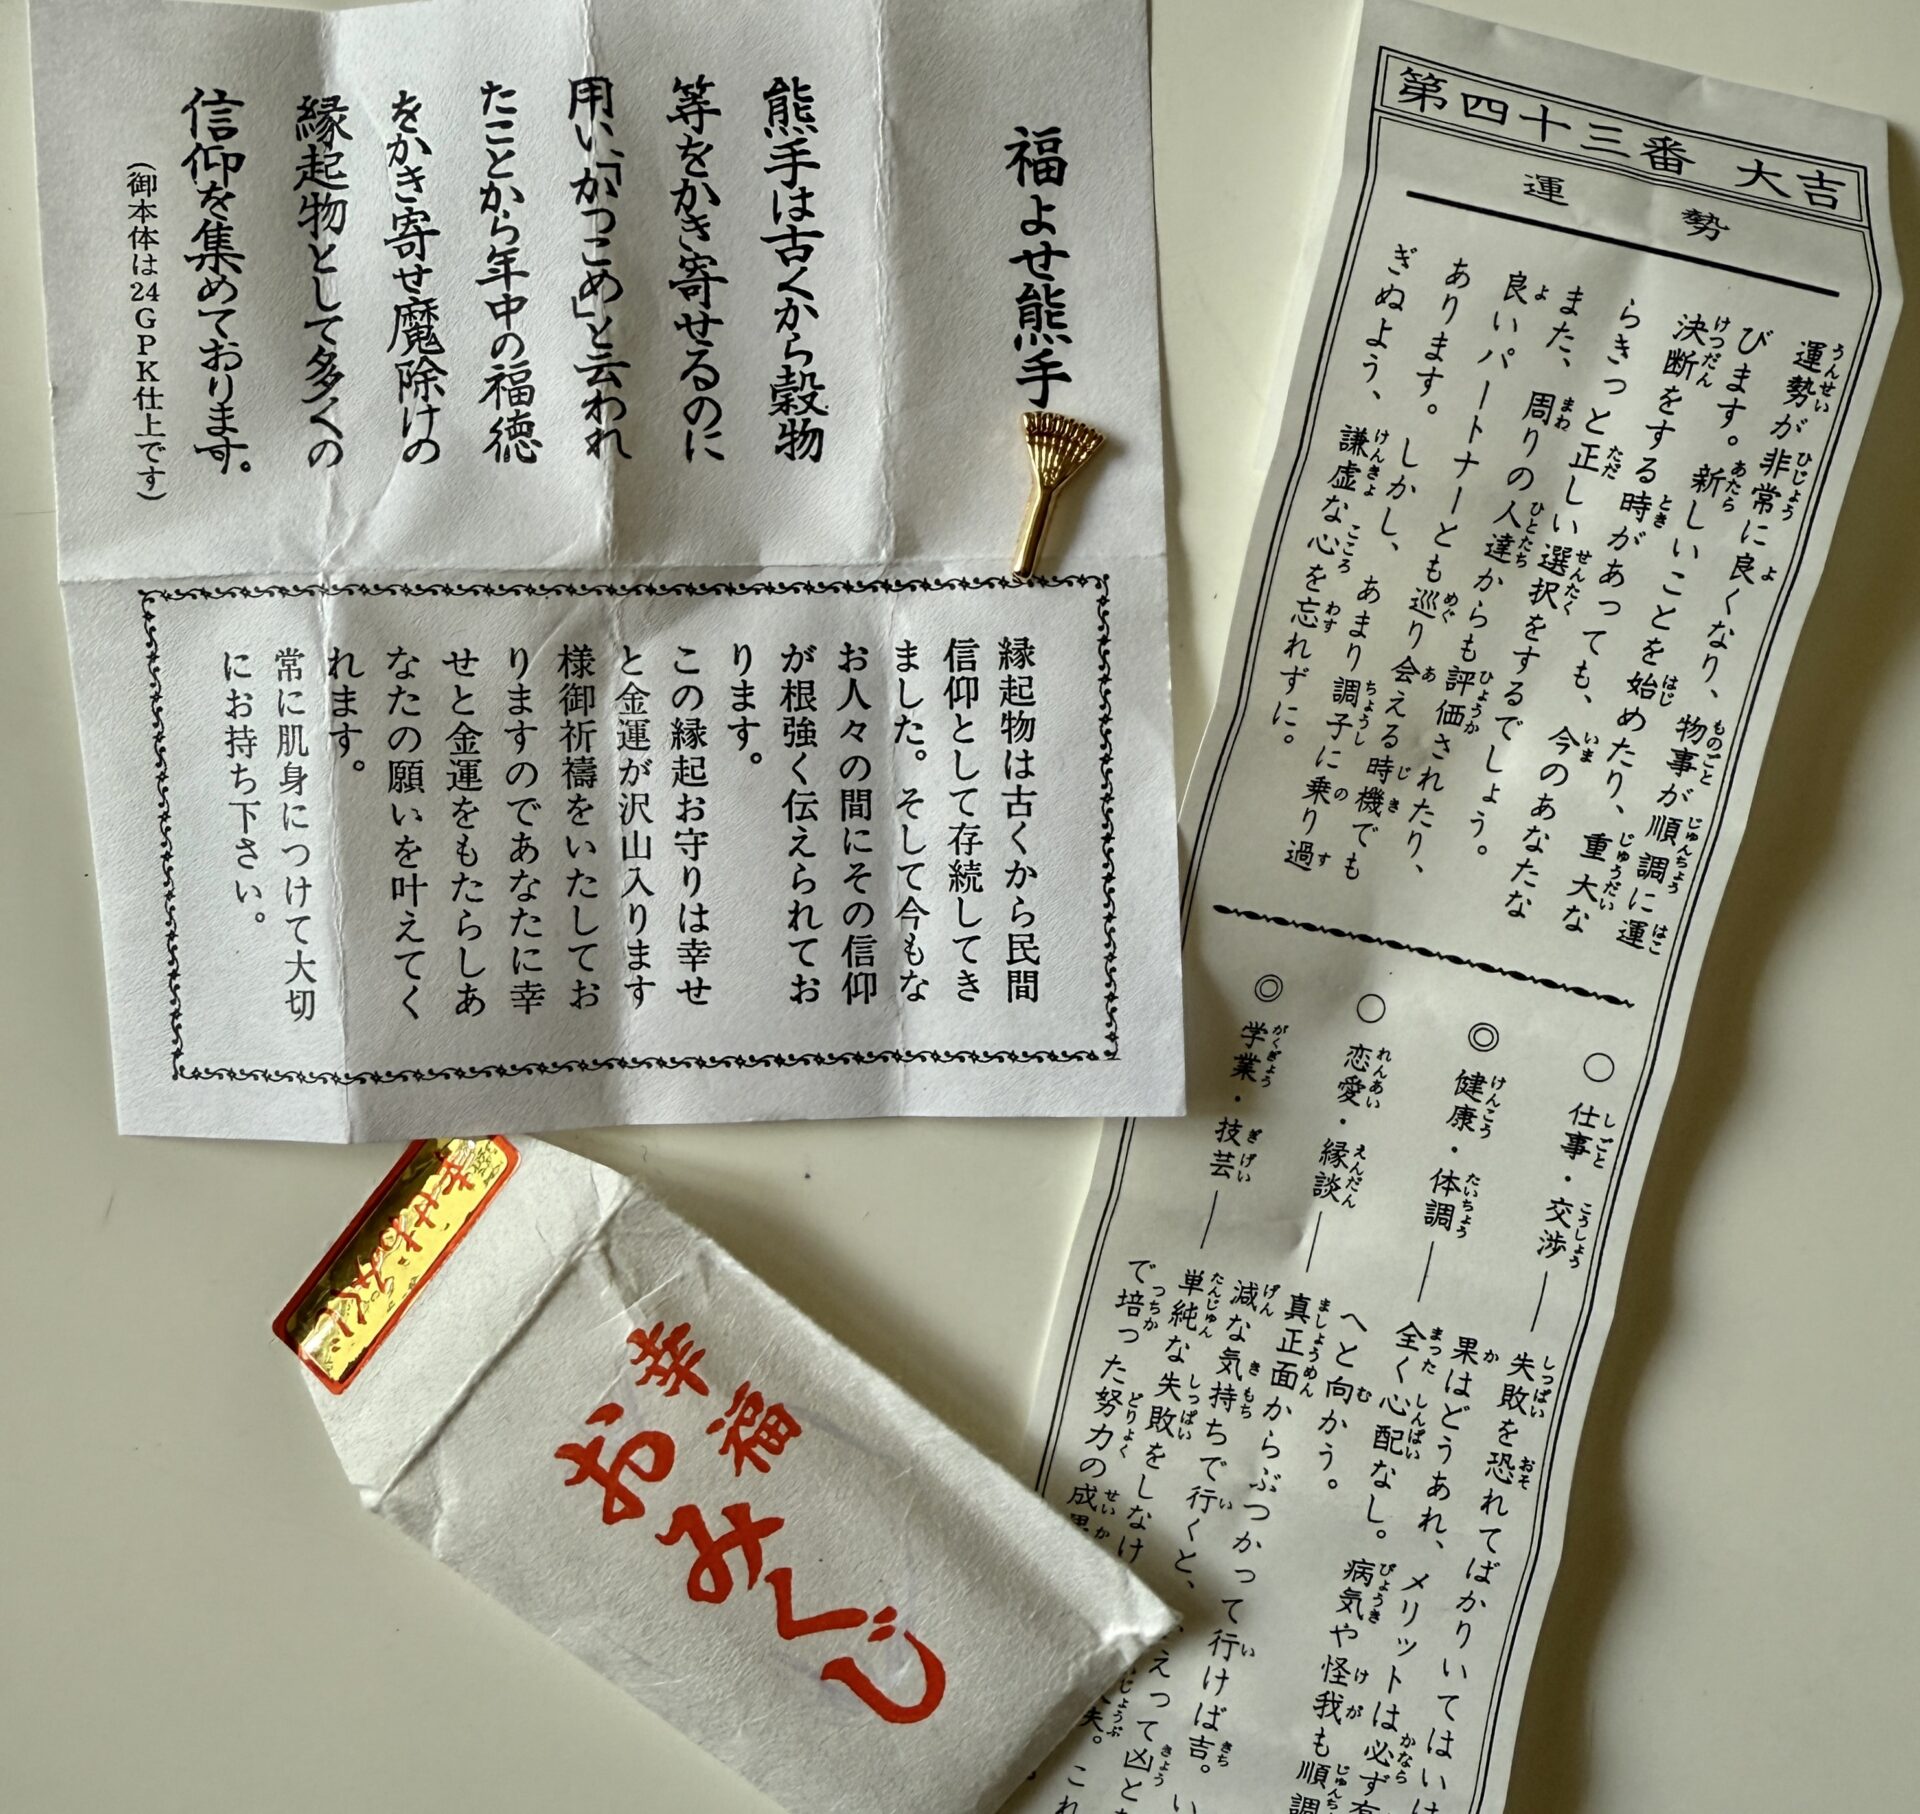 福よせ熊手
熊手は古くから穀物
等をかき寄せるのに
用い「かっこめ」と云われ
たことから年中の福徳
をかき寄せ魔除けの
縁起物として多くの
信仰を集めております。
(御本体は24GPK仕上です)
縁起物は古くから民間
信仰として存続してき
ました。そして今もな
お人々の間にその信仰
が根強く伝えられてお
ります。
この縁起お守りは幸せ
と金運が沢山入ります
様御祈禱をいたしてお
りますのであなたに幸
せと金運をもたらしあ
なたの願いを叶えてく
れます。
常に肌身につけて大切
にお持ち下さい。
第四十三番 大吉
運勢
運勢が非常に良くなり、物事が順調に運
びます。新しいことを始めたり、重大な
決断をする時があっても、今のあなたな
らきっと正しい選択をするでしょう。
また、周りの人達からも評価されたり、
良いパートナーとも巡り会える時機でも
あります。しかし、あまり調子に乗り過
ぎぬよう、謙虚な心を忘れずに。
○仕事・交渉―失敗を恐れてばかりいてはいけ
果はどうあれ、メリットは必ず有
◎健康・体調―全く心配なし。病気や怪我も順調
へと向かう。
○恋愛・縁談―真正面からぶつかって行けば吉。い
減な気持ちで行くと、
えって凶と
◎学業・技芸―単純な失敗をしなけ
で培った努力の成果
夫。これ
幸福
おみくじ
幸せおみくじ